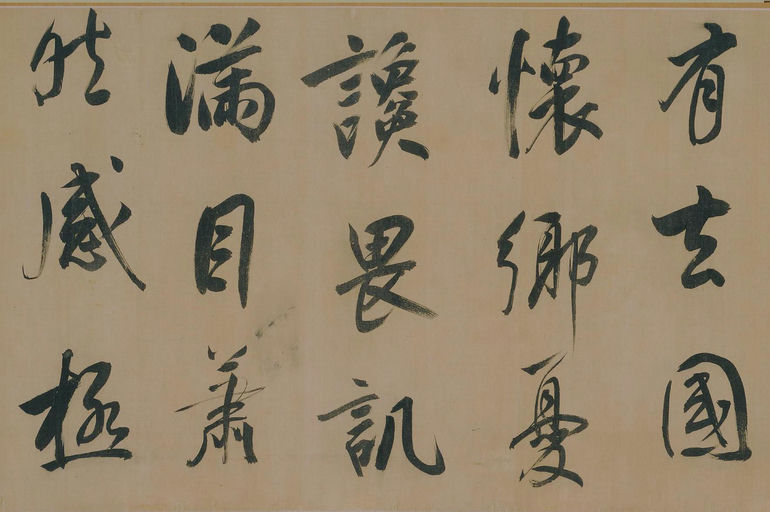 有去國
懷鄉憂
讒畏訊
滿目蕭
然感極